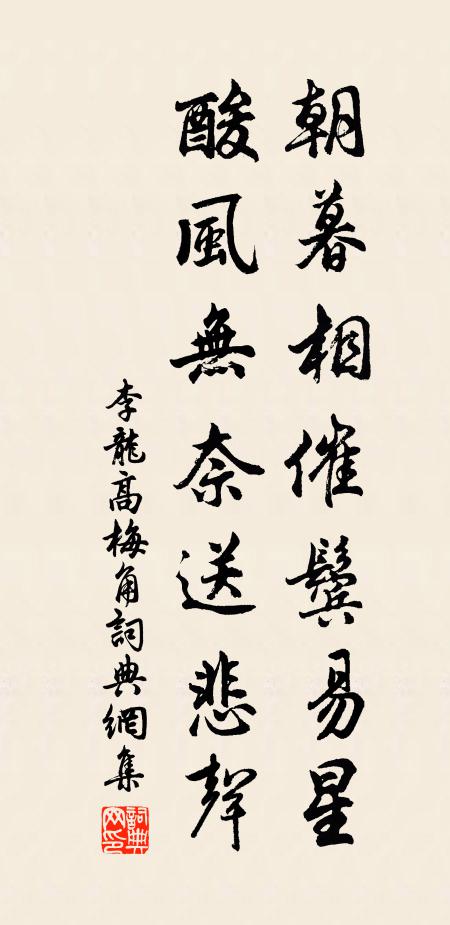 朝暮相催鬢易星
酸風無奈送悲聲
李龍高梅角詞典網集
詞典網印